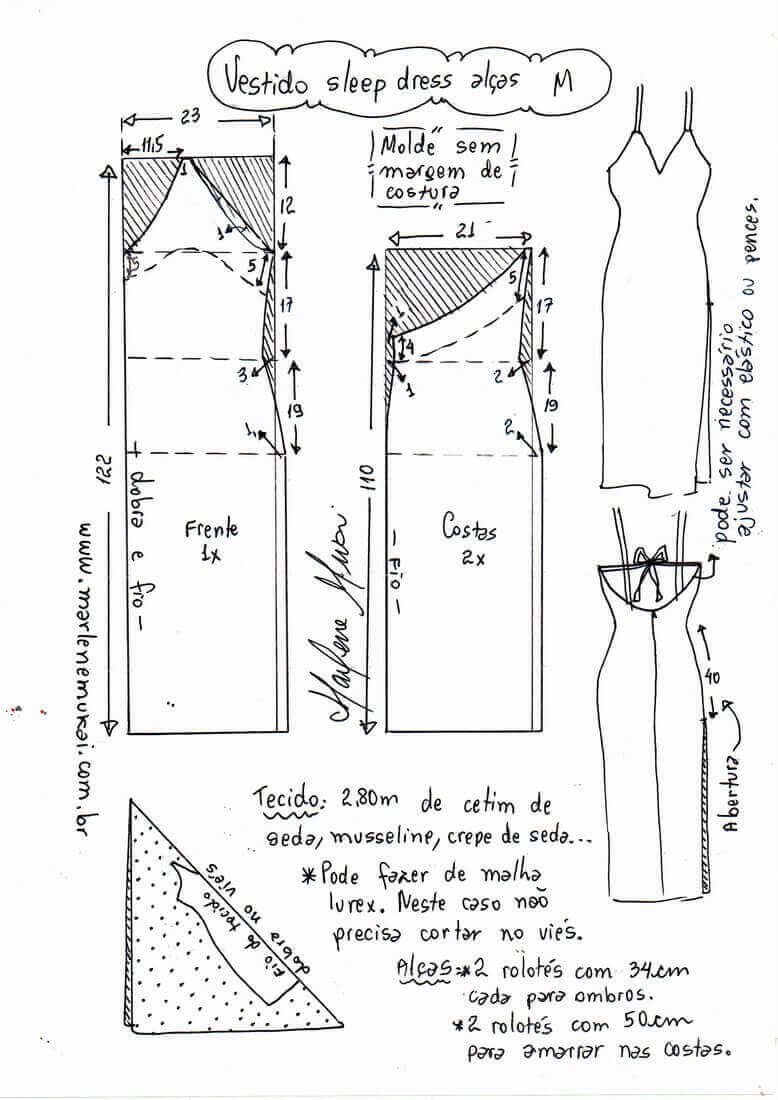 Vestido sleep dress alças M
23
11,5
1
12
1
5
17
3
19
1
122
+ dobra e fio -
Frente
1x
Molde sem
margem de
costura
21
5
17
4
1
2
19
2
110
- Fio -
Costas
2x
Marlene Mukai
www.marlenemukai.com.br
pode ser necessário
ajustar com elástico ou pences.
40
Abertura
Tecido: 2,80m de cetim de
seda, musseline, crepe de seda...
*Pode fazer de malha
lurex. Neste caso não
precisa cortar no viés.
Alças:*2 rolotés com 34cm
cada para ombros.
*2 rolotés com 50cm
para amarrar nas costas.
dobra no viés
Fio do tecido